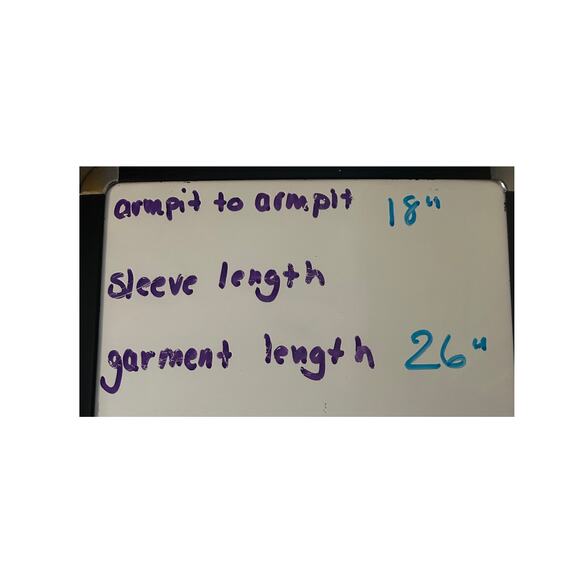 armpit to armpit 18"
sleeve length
garment length 26"